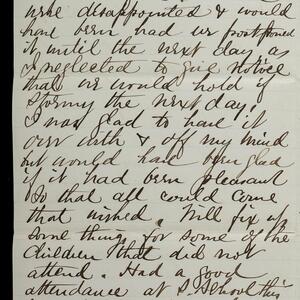 were disappointed & would
have been had we postponed
it until the next day as
I neglected to give notice
that we would hold if
stormy the next day.
I was glad to have it
over with & off my mind
but would have been glad
if it had been pleasant
so that all could come
that wished. Will fix up
some thing for some of the
children that did not
attend. Had a good
attendance at S. School this